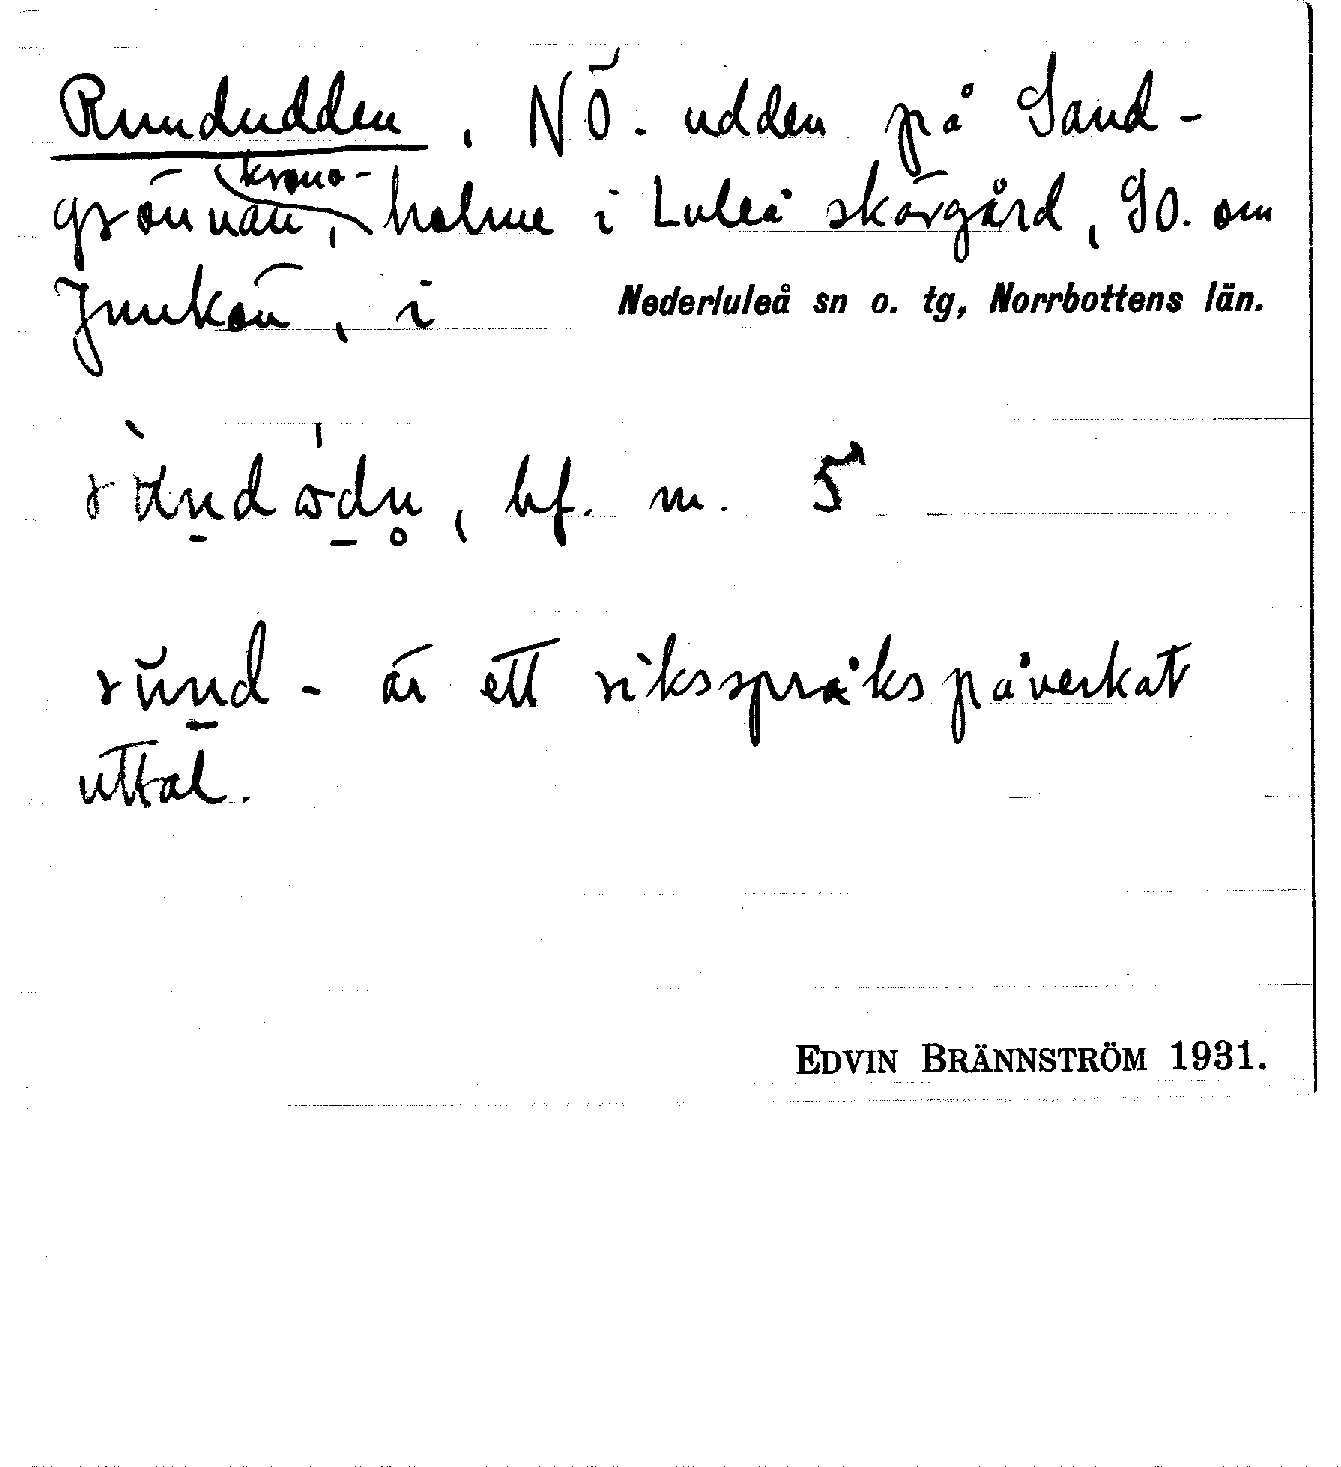 Rundudden, NÖ. udden på Sand-
grönnan, krono-holme i Luleå skärgård, SO. om
Junkön, i Nederluleå sn o. tg, Norrbottens län.
bf. m. 5
rund- är ett riksspråkspåverkat
uttal.
EDVIN BRÄNNSTRÖM 1931.